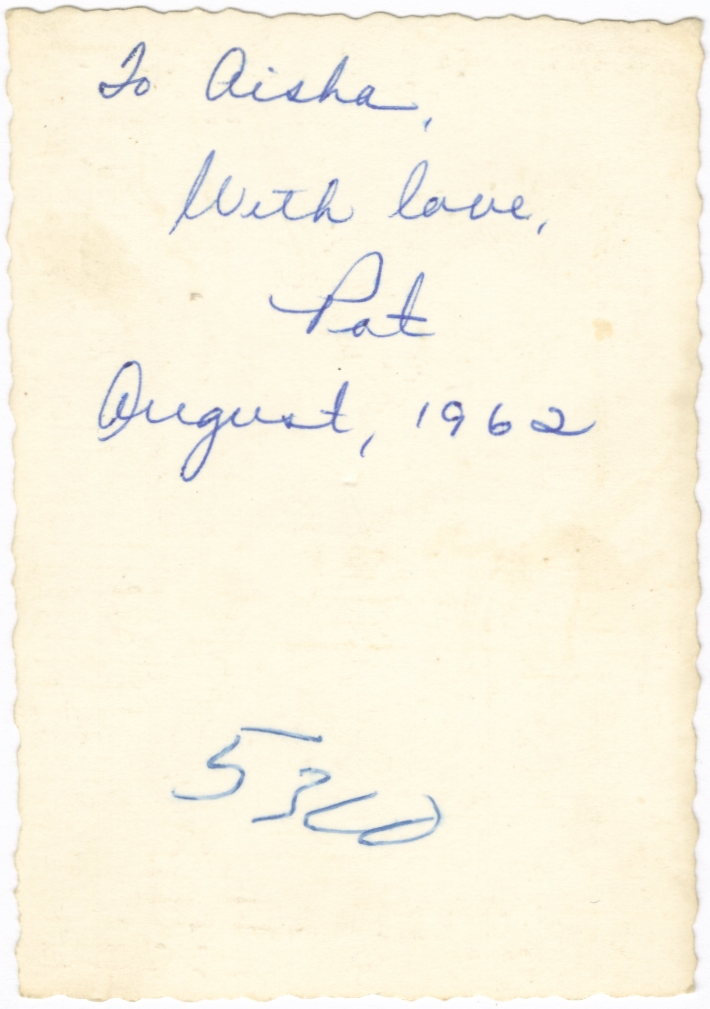 To Aisha,
With love,
Pat
August, 1962